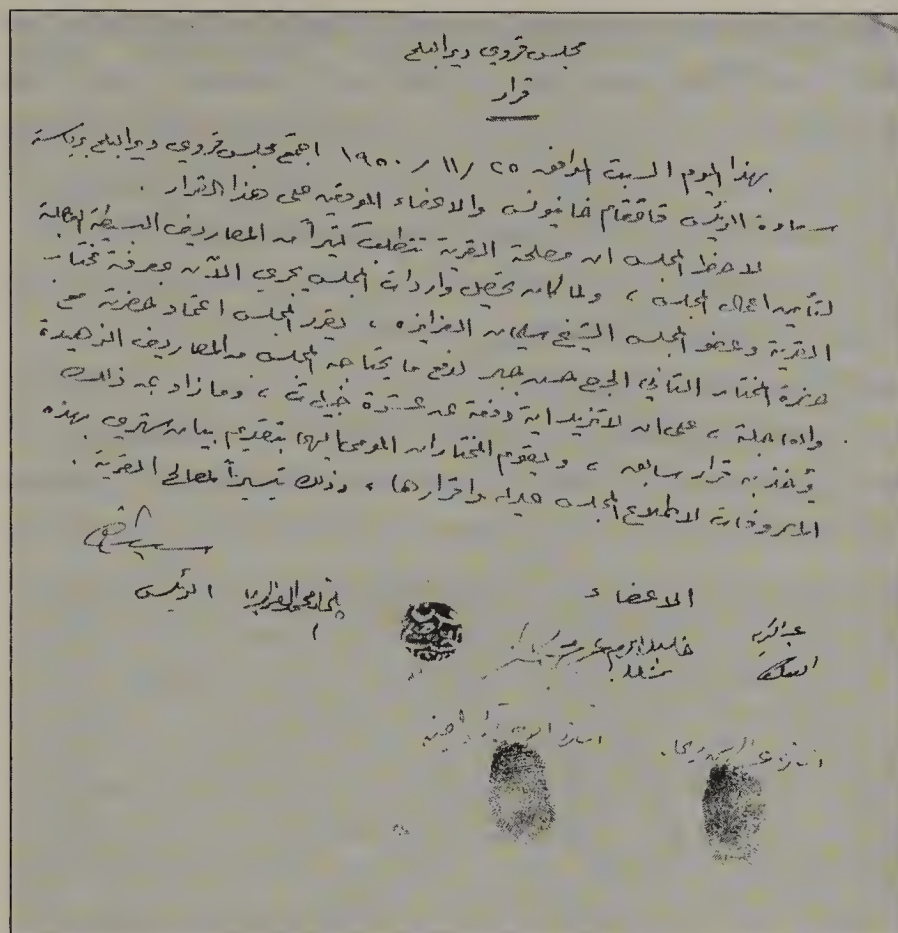 مجلس قروي ديرالبلح
قرار
بهذا اليوم السبت الموافق ٢٥ / ١١ / ١٩٥٠ اجتمع مجلس قروي ديرالبلح برياسة
سعادة الرئيس قائمقام خانيونس والاعضاء الموقعين على هذا القرار .
لاحظ المجلس ان مصلحة القرية تتطلب كثيراً من المصاريف البسيطة العاجلة
لتأمين اعمال المجلس ، ولما كان تحصيل واردات المجلس يجري الآن بمعرفة مختار
القرية وعضو المجلس الشيخ سليمان العزايزه ، يقرر المجلس اعتماد حضرته مع
حضرة المختار الثاني الحاج حسن جبر لدفع ما يحتاجه المجلس من المصاريف الزهيدة
والعاجلة ، على ان لا تزيد اية دفعة عن عشرة جنيهات ، وما زاد عن ذلك
يؤخذ به قرار سابق ، ويقوم المختاران المومى اليهما بتقديم بيان شهري بهذه
المصروفات لاطلاع المجلس عليه واقرارها ، وذلك تيسيراً لمصالح القرية .
الاعضاء
الرئيس
عبد الكريم
خليل ابراهيم